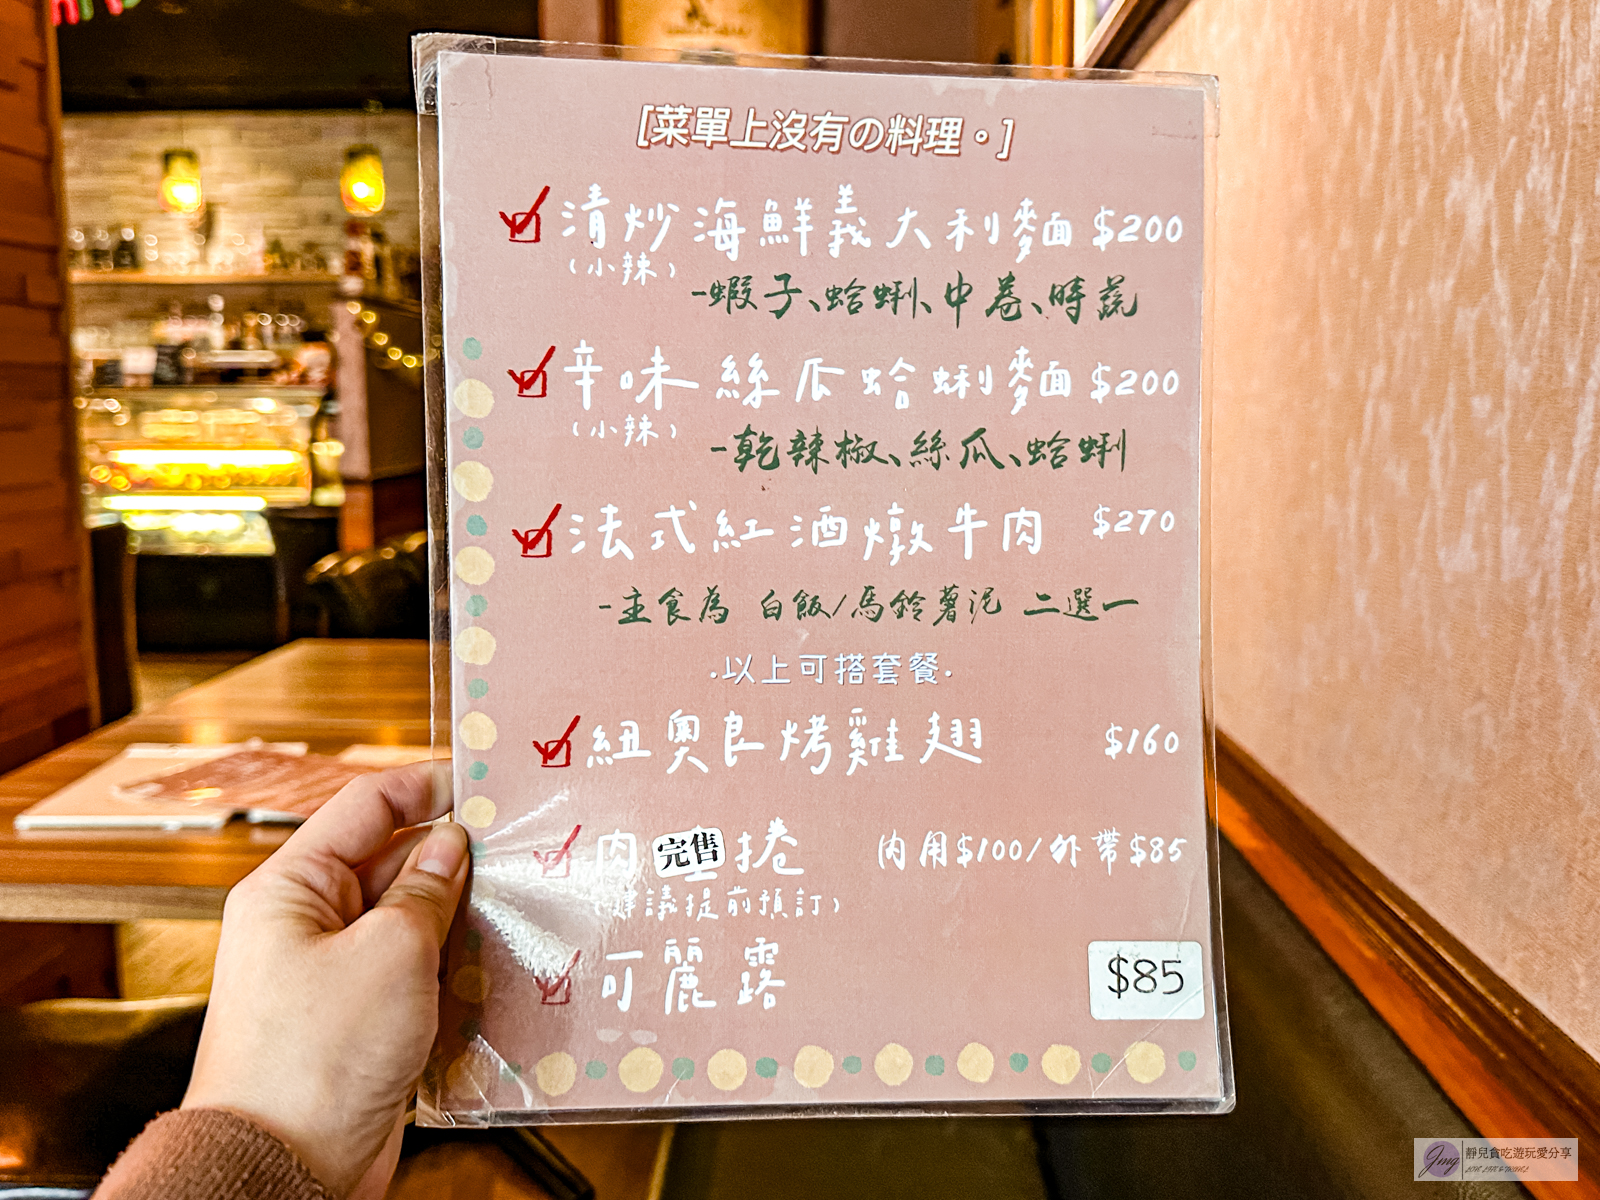 [菜單上沒有の料理。]
清炒海鮮義大利麵 $200
(小辣)
-蝦子、蛤蜊、中卷、時蔬
辛味絲瓜蛤蜊麵 $200
(小辣)
-乾辣椒、絲瓜、蛤蜊
法式紅酒燉牛肉 $270
-主食為 白飯/馬鈴薯泥 二選一
·以上可搭套餐·
紐奧良烤雞翅 $160
肉 完售 捲 內用$100/外帶$85
(建議提前預訂)
可麗露 $85
Jmg 靜兒貪吃遊玩愛分享